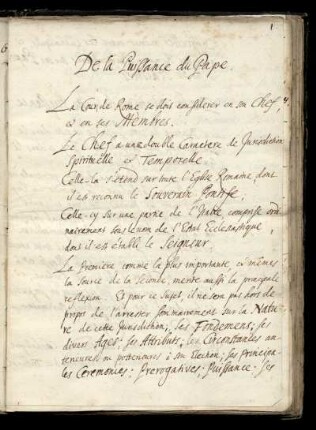 1
De la Puissance du Pape
La Cour de Rome se doit considerer en son Chef,
et en ses Membres.
Le Chef a une double Caractere de Jurisdiction
Spirituelle et Temporelle.
Celle-la s'étend sur toute l'Eglise Romaine dont
il est reconnu le Souverain Pontife.
Celle-cy sur une partie de l'Italie comprise ordi
nairement sous le nom de l'Etat Ecclesiastique,
dont il est établi le Seigneur.
La premiere comme la plus importante et mêmes
la source de la seconde, merite aussi la principale
reflexion. Et pour ce sujet, il ne sera pas hors de
propos de s'arrester sommairement sur la Natu
re de cette Jurisdiction; ses Fondemens; ses
divers Ages; ses Attributs; les Circonstances an
terieures ou posterieures à son Election; ses principa-
les Ceremonies; Prerogatives; Puissance; ses